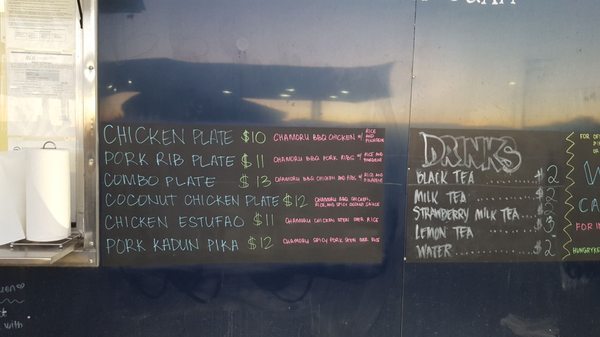 CHICKEN PLATE $10 CHAMORU BBQ CHICKEN w/ RICE AND FINADENE
PORK RIB PLATE $11 CHAMORU BBQ PORK RIBS w/ RICE AND FINADENE
COMBO PLATE $13 CHAMORU BBQ CHICKEN AND RIBS, w/ RICE AND FINADENE
COCONUT CHICKEN PLATE $12 CHAMORU BBQ CHICKEN, RICE AND SPICY COCONUT SAUCE
CHICKEN ESTUFAO $11 CHAMORU CHICKEN STEW OVER RICE
PORK KADUN PIKA $12 CHAMORU SPICY PORK STEW OVER RICE
DRINKS
BLACK TEA $2
MILK TEA
STRAWBERRY MILK TEA
LEMON TEA $3
WATER $2
FOR
CA
FOR
HUNGRY
with